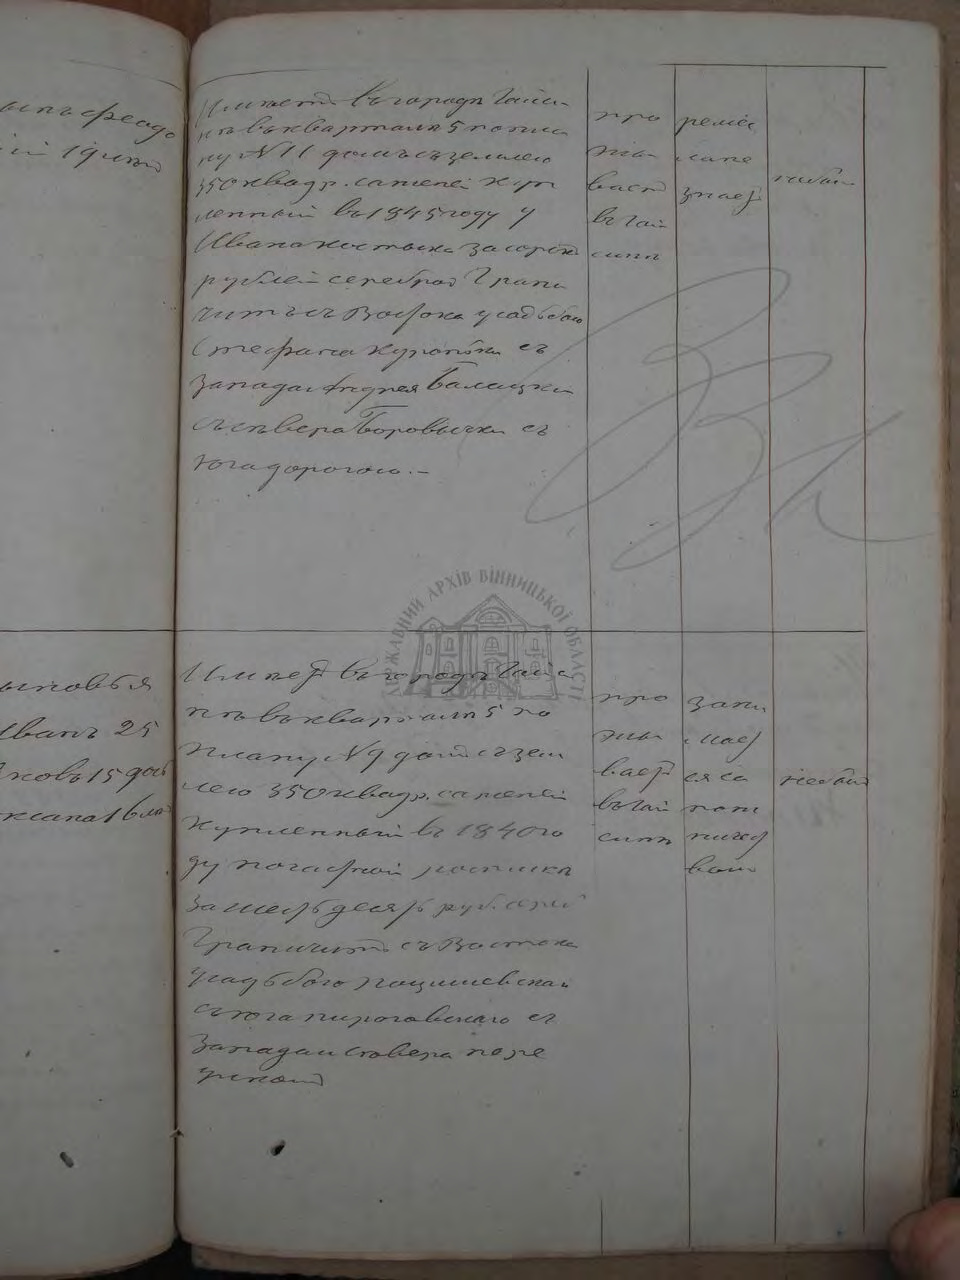 Имеетъ въ городѣ Гайси
нѣ въ кварталѣ 5 по пла
ну № 11 домъ съ землею
350 квадр. саженей куп
ленный въ 1845 году у
Ивана Костюка за сорокъ
рублей серебромъ Грани
читъ съ Востока усадьбою
Стефана съ
Запада Андрея Балицкаго
съ сѣвера Боровычка съ
юга дорогою. —
про
жи
ваетъ
въ Гай
синѣ
ремес
ла не
знаетъ
небылъ
сыновья
Иванъ 25
Яковъ 15 дочь
Оксана 16 лѣтъ
Имѣетъ въ городѣ Гайси
нѣ въ кварталѣ 5 по
плану № 9 домъ съ зем
лею 350 квадр. саженей
купленный въ 1840 го
ду по частной роспискѣ
за шестьдесятъ руб. сереб
Граничитъ съ Востока
усадьбою
съ юга Пироговскаго съ
Запада и сѣвера пере
улкомъ
про
жи
ваетъ
въ Гай
синѣ
зани
мает
ся са
пож
ничест
вомъ
небылъ
ДЕРЖАВНИЙ АРХІВ ВІННИЦЬКОЇ ОБЛАСТІ